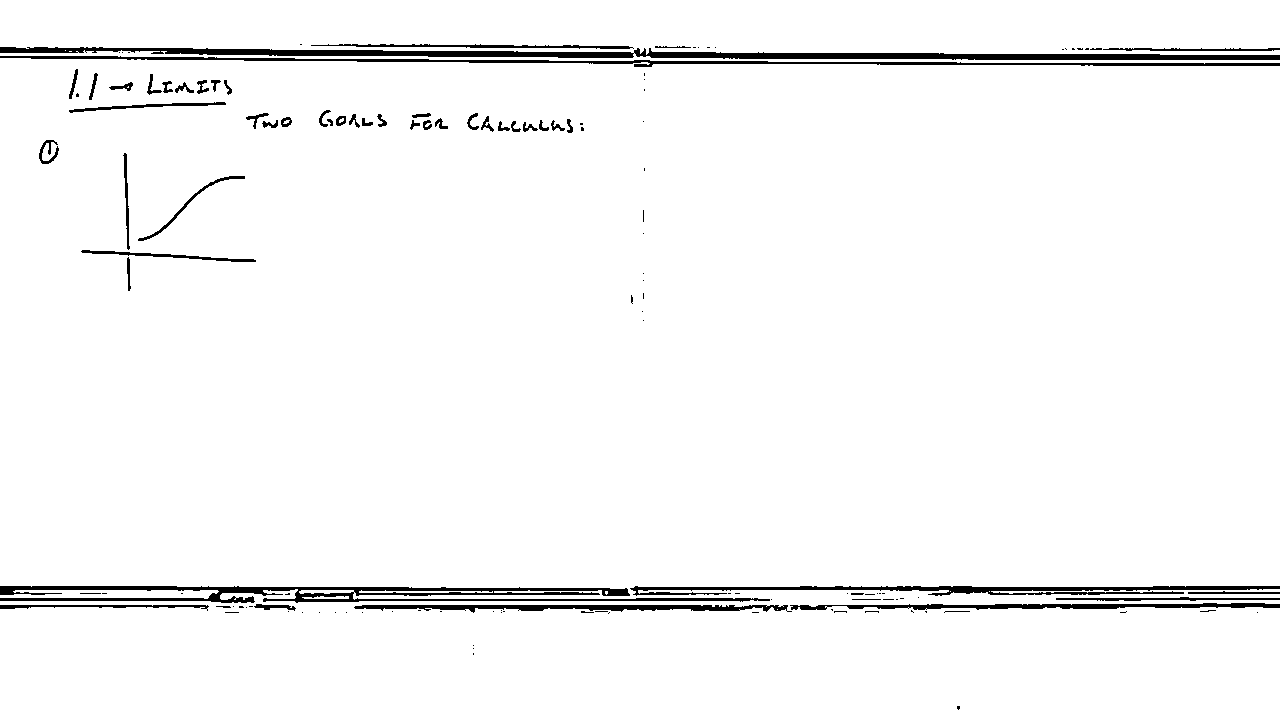 1.1 → LIMITS
TWO GOALS FOR CALCULUS:
①